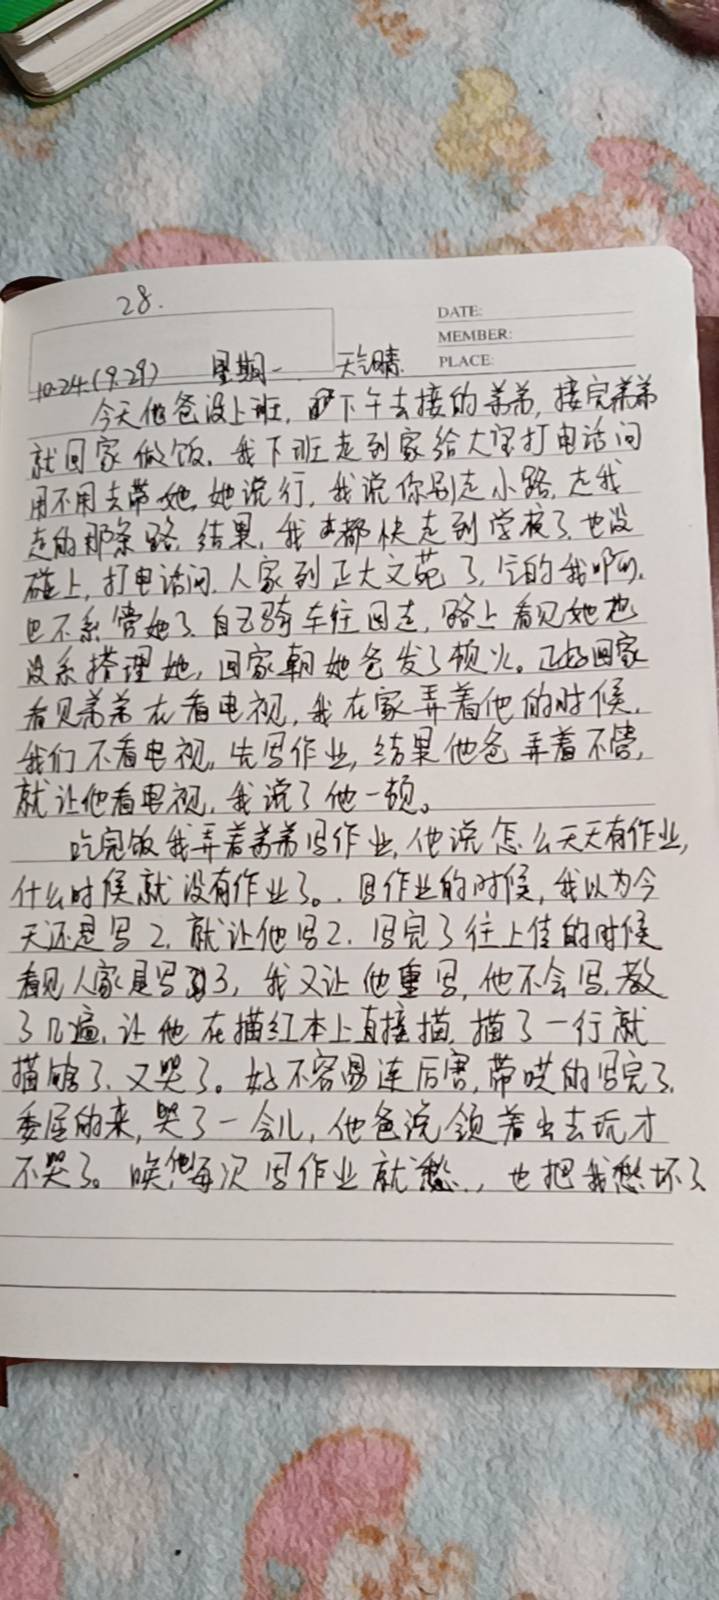 28.
DATE:
MEMBER:
PLACE:
10-24.(9.29) 星期一 天气晴.
今天他爸没上班, 下午去接的弟弟, 接完弟弟
就回家做饭. 我下班走到家给大宝打电话问
用不用去带她, 她说行, 我说你别走小路, 走我
走的那条路, 结果, 我都快走到学校了, 也没
碰上, 打电话问, 人家到正大文苑了, 气的我啊,
也不系管她了, 自己骑车往回走, 路上看见她也
没系搭理她, 回家朝她爸发了顿火。正好回家
看见弟弟在看电视, 我在家弄着他的时候,
我们不看电视, 先写作业, 结果他爸弄着不管,
就让他看电视, 我说了他一顿。
吃完饭我弄着弟弟写作业, 他说怎么天天有作业,
什么时候就没有作业了。. 写作业的时候, 我以为今
天还是写2, 就让他写2. 写完了往上传的时候
看见人家是写3, 我又让他重写, 他不会写, 教
了几遍, 让他在描红本上直接描, 描了一行就
描够了, 又哭了。好不容易连厉害, 带哄的写完了,
委屈的来, 哭了一会儿, 他爸说领着出去玩才
不哭了。唉他每次写作业就愁., 也把我愁坏了